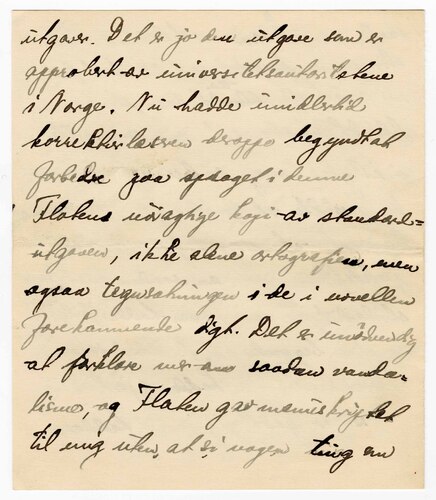 utgaver. Det er jo den utgave som er
approbert av universitetsautoritetene
i Norge. Nu hadde imidlertid
korrekturlæseren deroppe begyndt at
forbedre paa sproget i denne
Flatens nöiagtige kopi av standard=
utgaven, ikke alene ortografien, men
ogsaa tegnsætningen i de i novellen
forekommende digt. Det er unödvendig
at forklare mer om saadan vanda-
lisme, og Flaten gav manuskriptet
til mig uten at si nogen ting om